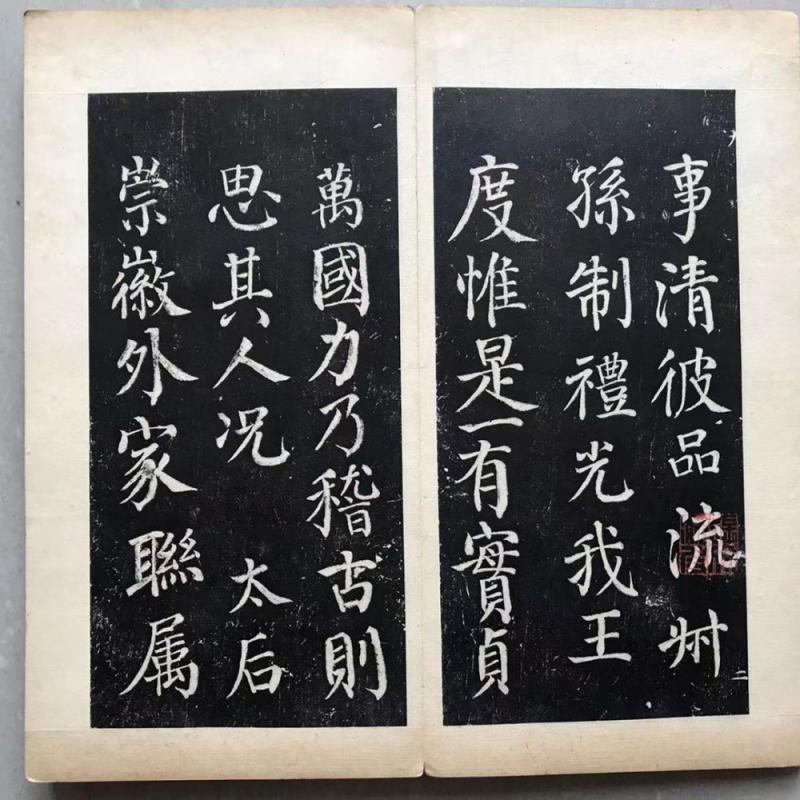 事清彼品流叔
孫制禮光我王
度惟是一有實貞
萬國力乃稽古則
思其人况 太后
崇徽外家聯属
二